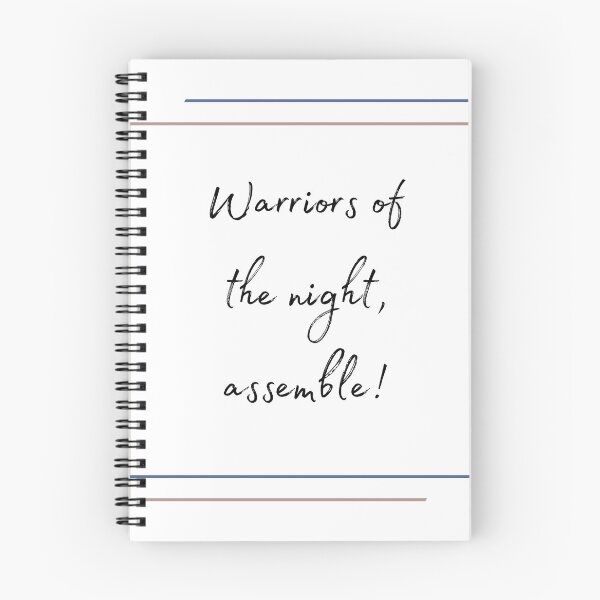 Warriors of
the night,
assemble!